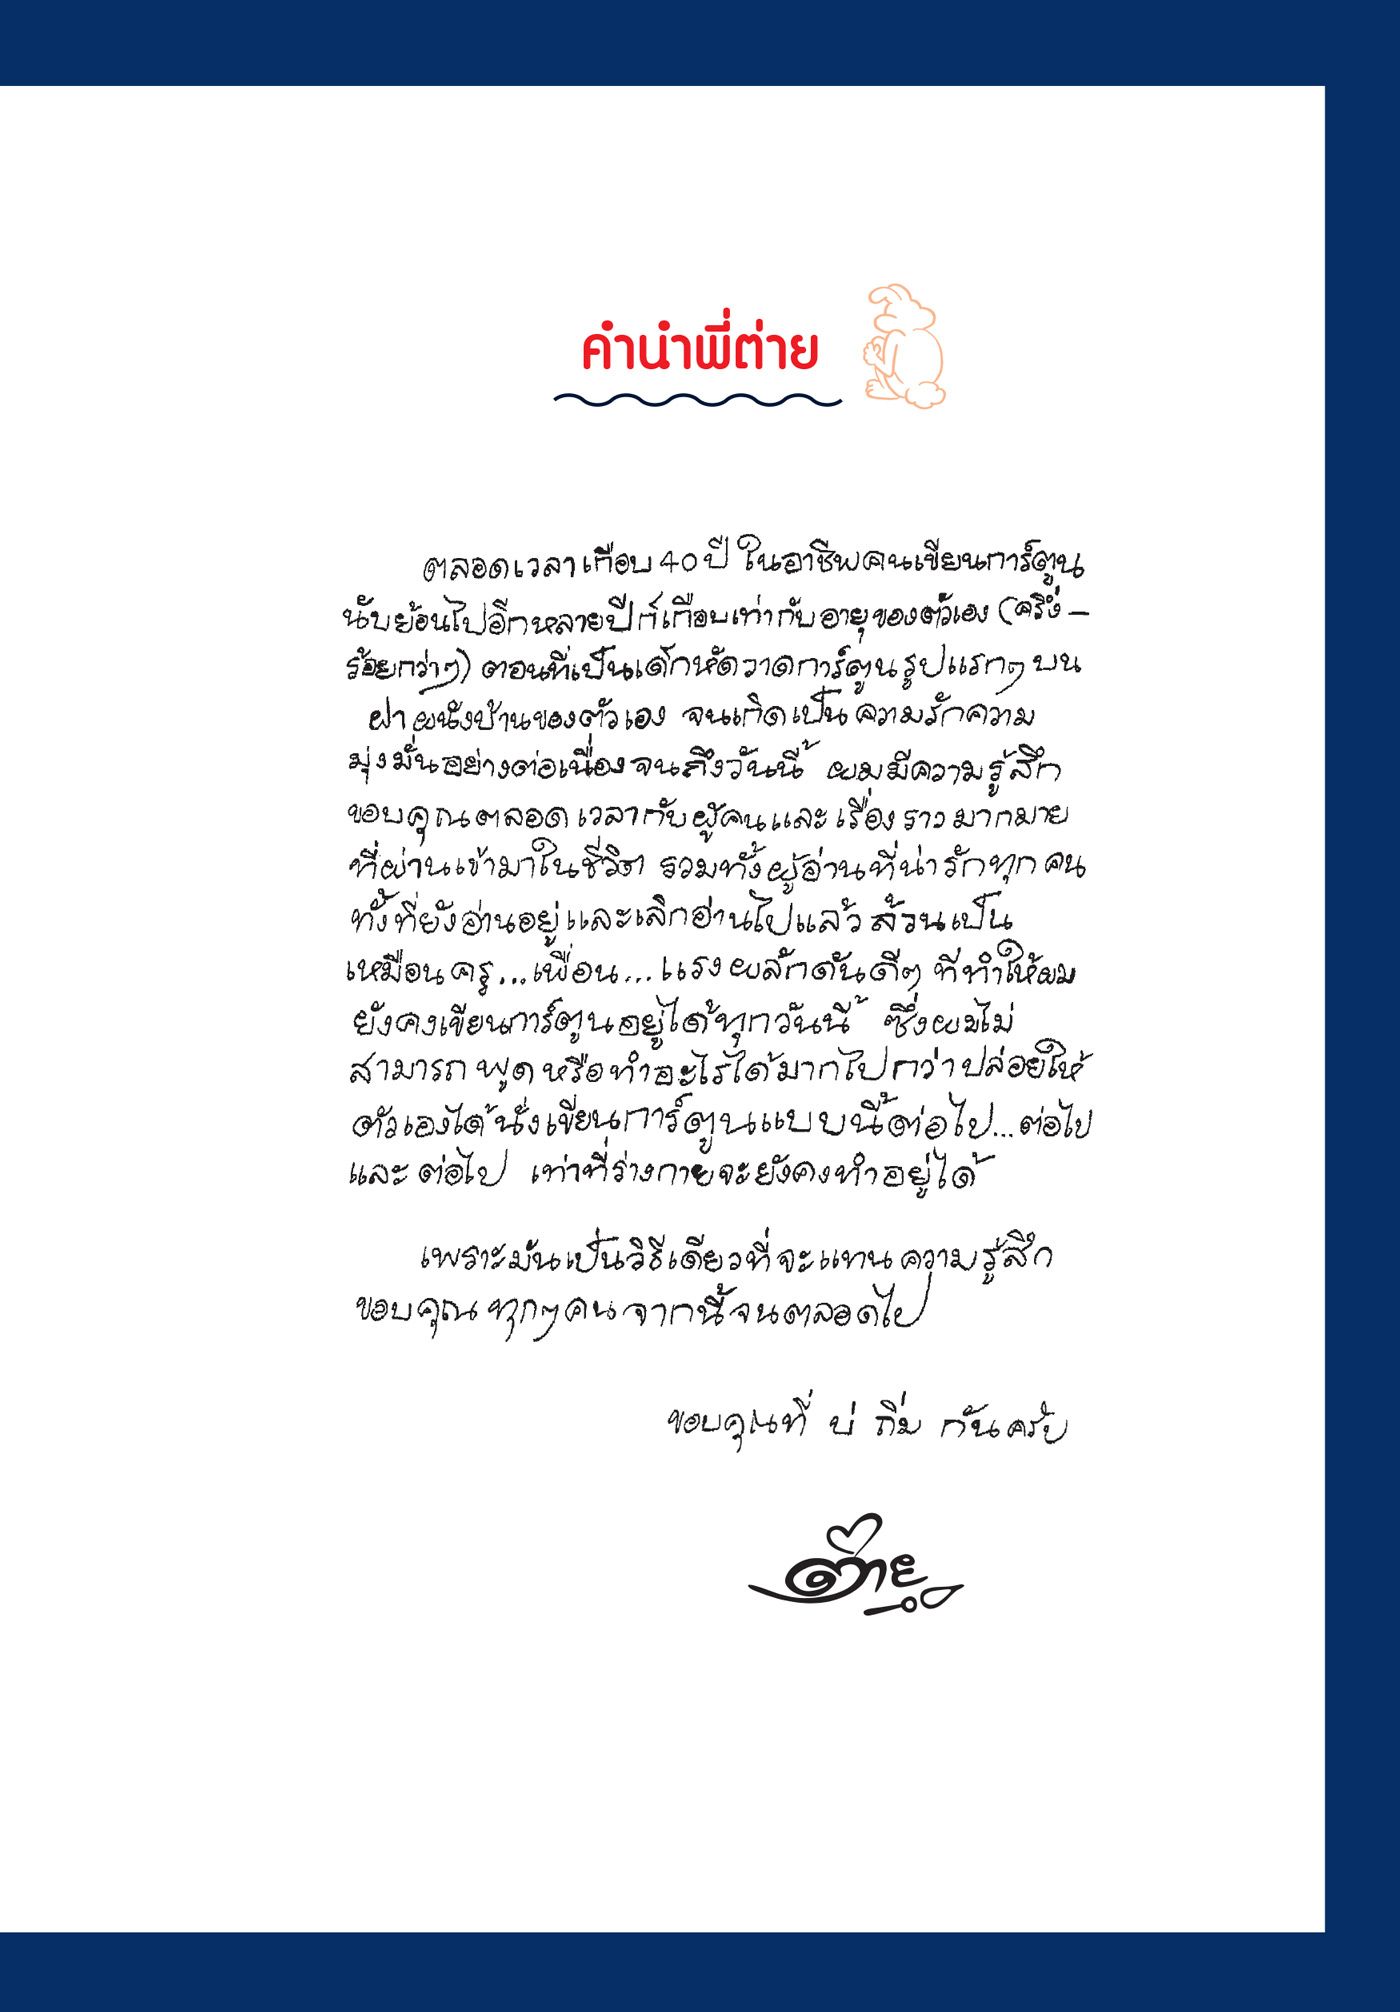 คำนำพี่ต่าย
ตลอดเวลาเกือบ 40 ปี ในอาชีพคนเขียนการ์ตูน
นับย้อนไปอีกหลายปีก็เกือบเท่ากับอายุของตัวเอง (ครึ่ง–
ร้อยกว่าๆ) ตอนที่เป็นเด็กหัดวาดการ์ตูนรูปแรกๆ บน
ฝาผนังบ้านของตัวเอง จนเกิดเป็นความรักความ
มุ่งมั่นอย่างต่อเนื่องจนถึงวันนี้ ผมมีความรู้สึก
ขอบคุณตลอดเวลากับผู้คนและเรื่องราวมากมาย
ที่ผ่านเข้ามาในชีวิต รวมทั้งผู้อ่านที่น่ารักทุกคน
ทั้งที่ยังอ่านอยู่และเลิกอ่านไปแล้ว ล้วนเป็น
เหมือนครู...เพื่อน...แรงผลักดันดีๆ ที่ทำให้ผม
ยังคงเขียนการ์ตูนอยู่ได้ทุกวันนี้ ซึ่งผมไม่
สามารถพูดหรือทำอะไรได้มากไปกว่าปล่อยให้
ตัวเองได้นั่งเขียนการ์ตูนแบบนี้ต่อไป...ต่อไป
และต่อไป เท่าที่ร่างกายจะยังคงทำอยู่ได้
เพราะมันเป็นวิธีเดียวที่จะแทนความรู้สึก
ขอบคุณทุกๆคนจากนี้จนตลอดไป
ขอบคุณที่ บ่ ถิ่ม กันครับ
ต่าย